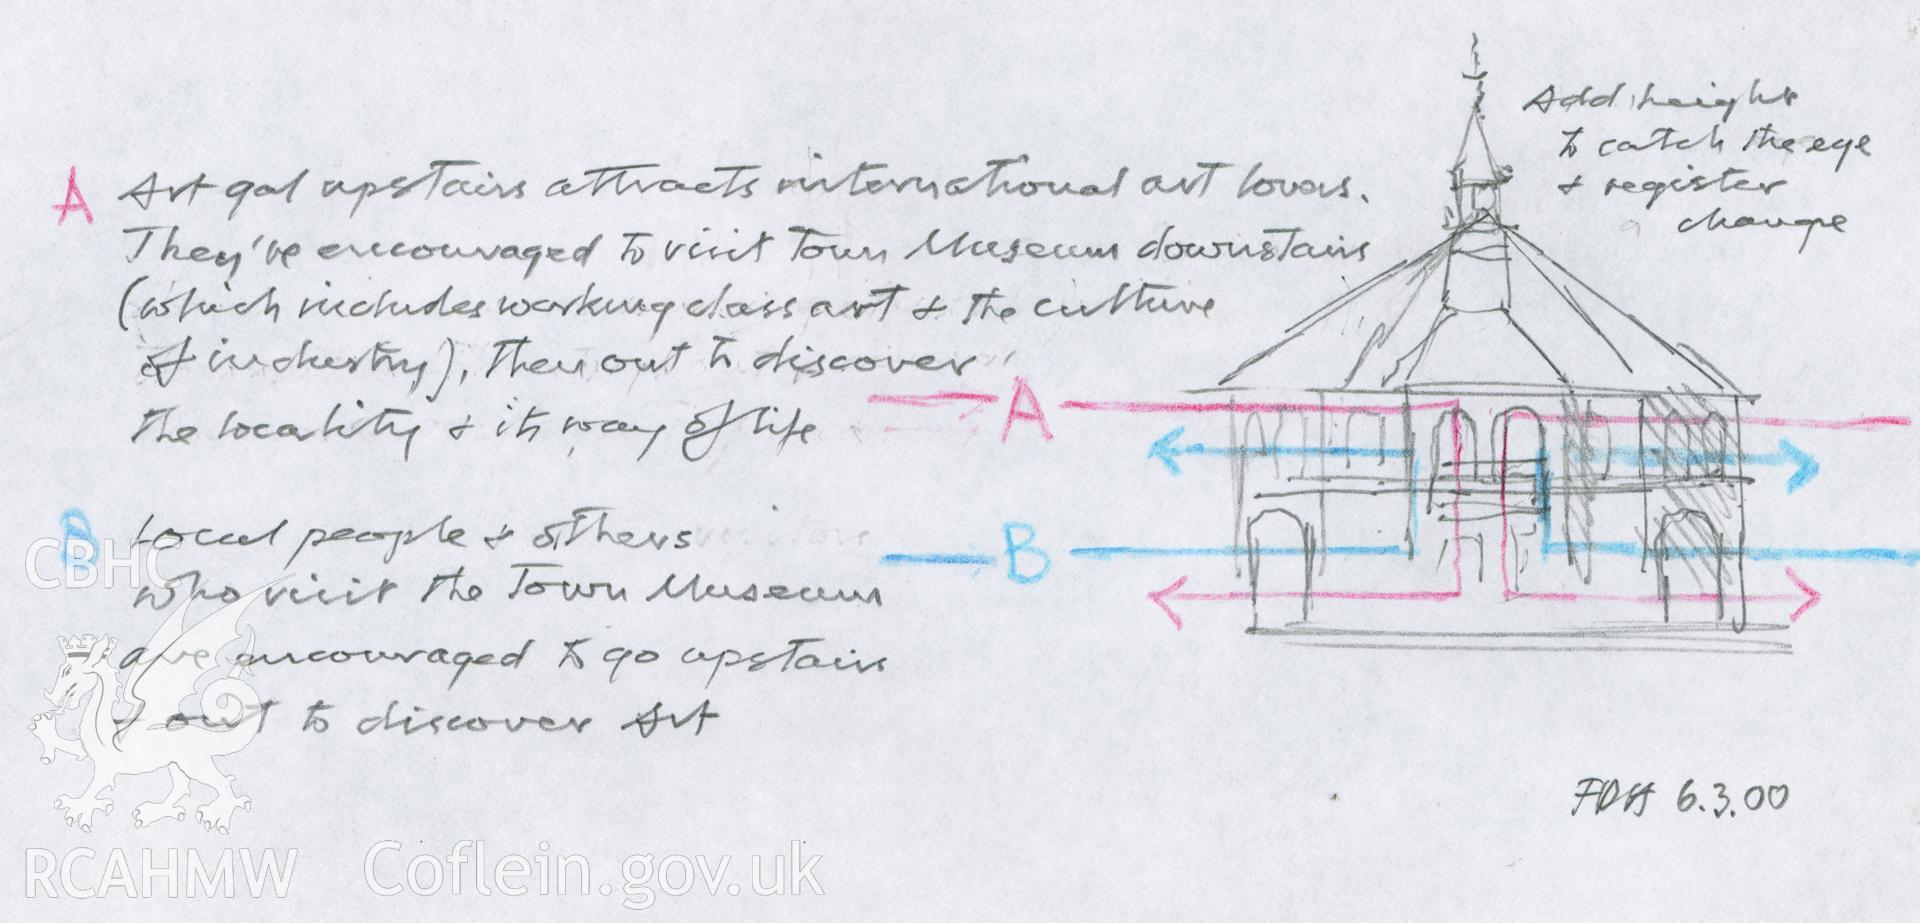 Add height
to catch the eye
& register
change
A Art gal upstairs attracts international art lovers.
They've encouraged to visit Town Museum downstairs
(which includes working class art & the culture
of industry), then out to discover
the locality & its way of life
A
B Local people & others
who visit the Town Museum
are encouraged to go upstairs
& out to discover Art
B
FDH 6.3.00
CBHC
RCAHMW
Coflein.gov.uk